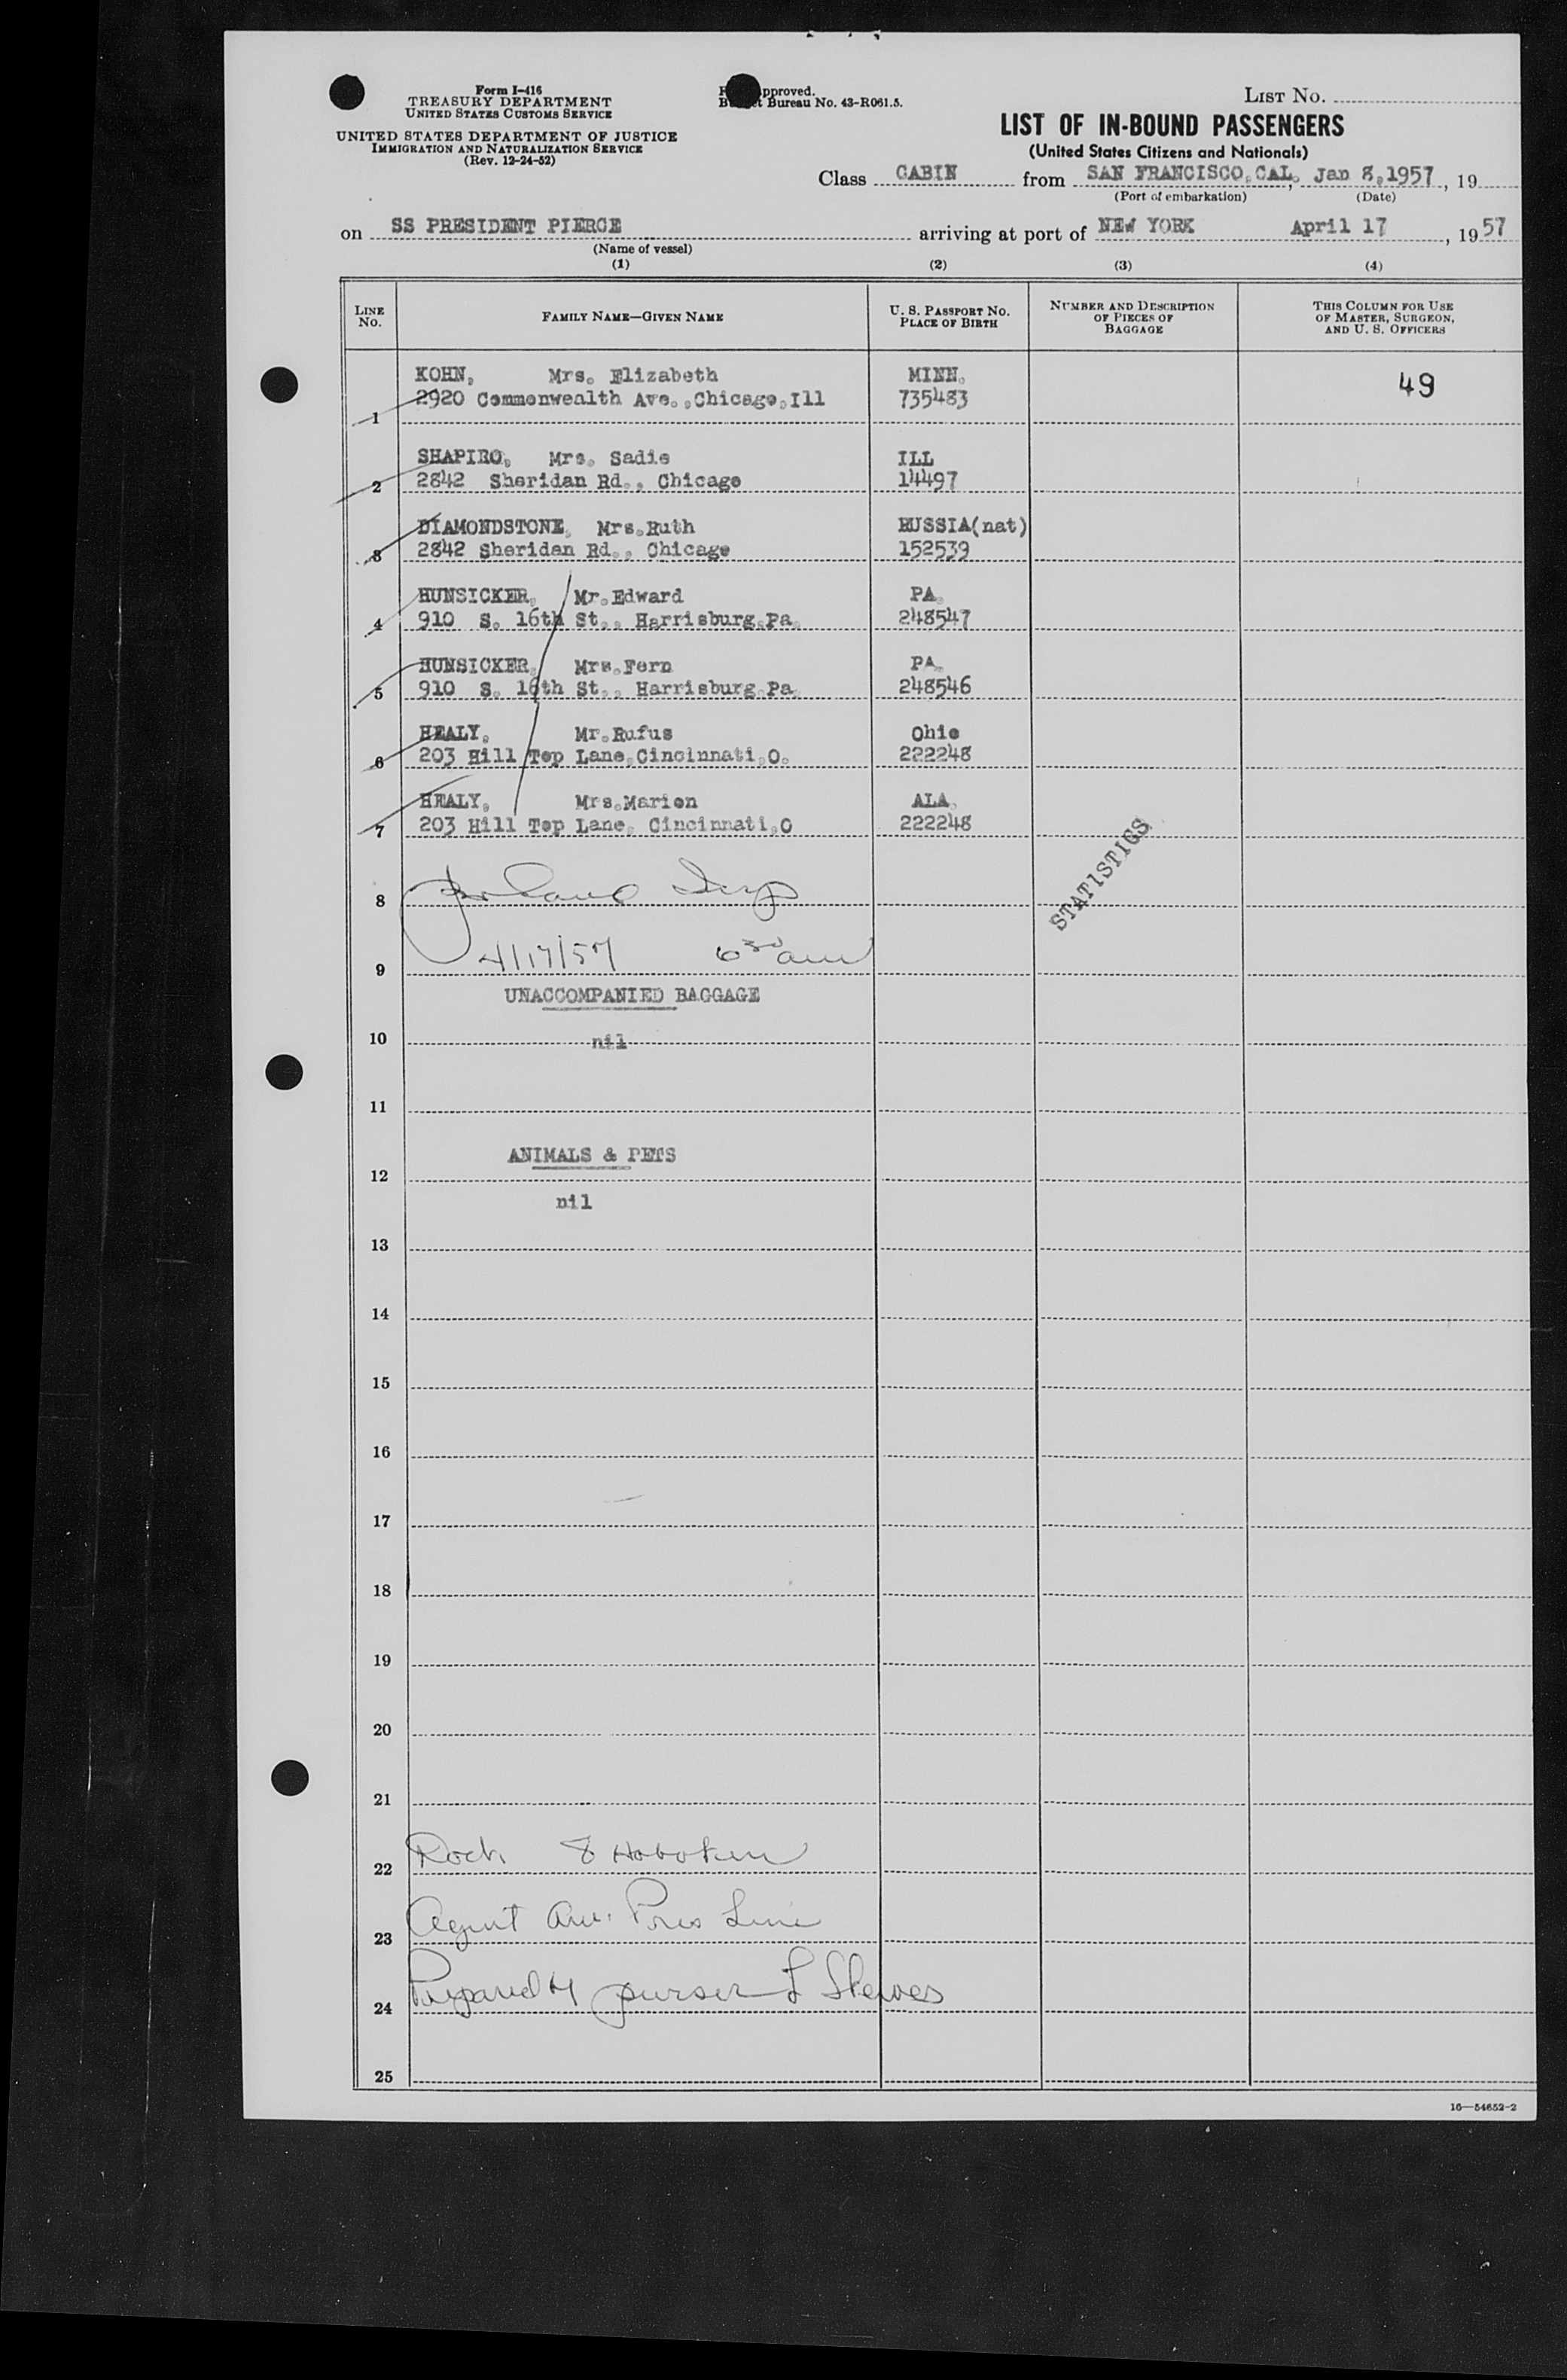 Form I-416
TREASURY DEPARTMENT
UNITED STATES CUSTOMS SERVICE
UNITED STATES DEPARTMENT OF JUSTICE
IMMIGRATION AND NATURALIZATION SERVICE
(Rev. 12-24-52)
pproved.
Bureau No. 43-R061.5.
LIST NO.
LIST OF IN-BOUND PASSENGERS
(United States Citizens and Nationals)
Class CABIN from SAN FRANCISCO, CAL., Jan 8, 1957, 19
(Port of embarkation) (Date)
on SS PRESIDENT PIERCE arriving at port of NEW YORK April 17, 1957
(Name of vessel)
(1) (2) (3) (4)
LINE NO. FAMILY NAME—GIVEN NAME U. S. PASSPORT NO. PLACE OF BIRTH NUMBER AND DESCRIPTION OF PIECES OF BAGGAGE THIS COLUMN FOR USE OF MASTER, SURGEON, AND U. S. OFFICERS
KOHN, Mrs. Elizabeth MINN. 49
1 2920 Commonwealth Ave., Chicago, Ill 735483
SHAPIRO, Mrs. Sadie ILL
2 2842 Sheridan Rd., Chicago 14497
DIAMONDSTONE, Mrs. Ruth RUSSIA(nat)
3 2842 Sheridan Rd., Chicago 152539
HUNSICKER, Mr. Edward PA.
4 910 S. 16th St., Harrisburg, Pa. 248547
HUNSICKER, Mrs. Fern PA.
5 910 S. 16th St., Harrisburg, Pa. 248546
HEALY, Mr. Rufus Ohio
6 203 Hill Top Lane, Cincinnati, O. 222248
HEALY, Mrs. Marion ALA.
7 203 Hill Top Lane, Cincinnati, O 222248
STATISTICS
8
9 4/17/57 6 30 am
UNACCOMPANIED BAGGAGE
10 nil
11
ANIMALS & PETS
12
nil
13
14
15
16
17
18
19
20
21
22 Dock 8 Hoboken
23 Agent Am. Pres Line
24 Prepared by purser L
25
16—54652-2